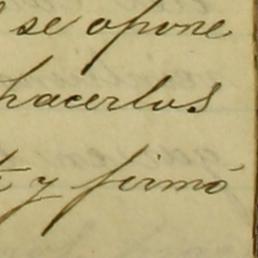 se opone
hacerlos
y firmó